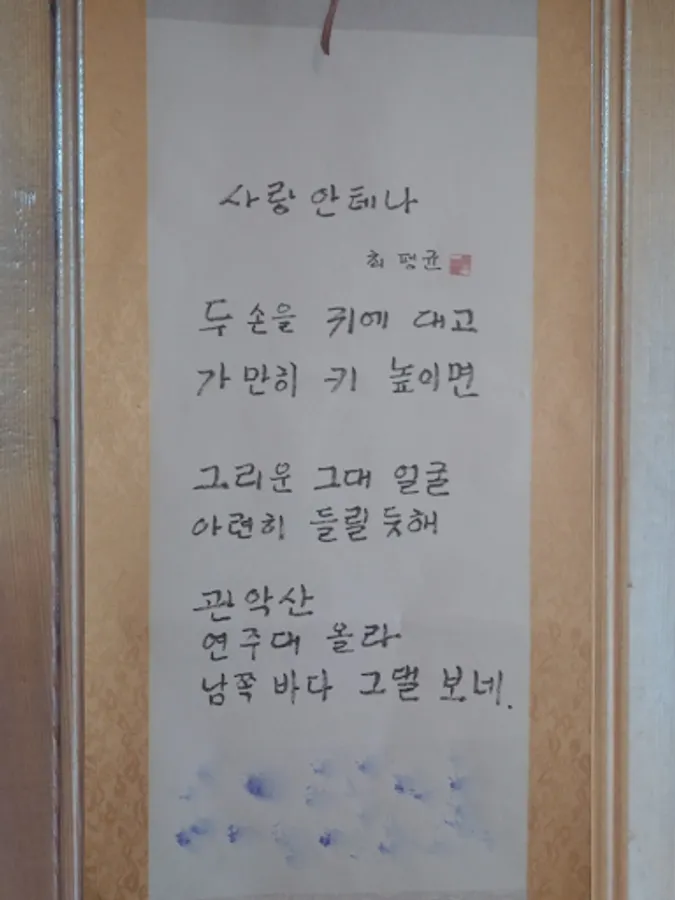 사랑 안테나
최평균
두 손을 귀에 대고
가만히 키 높이면
그리운 그대 얼굴
아련히 들릴 듯해
관악산
연주대 올라
남쪽 바다 그댈 보네.